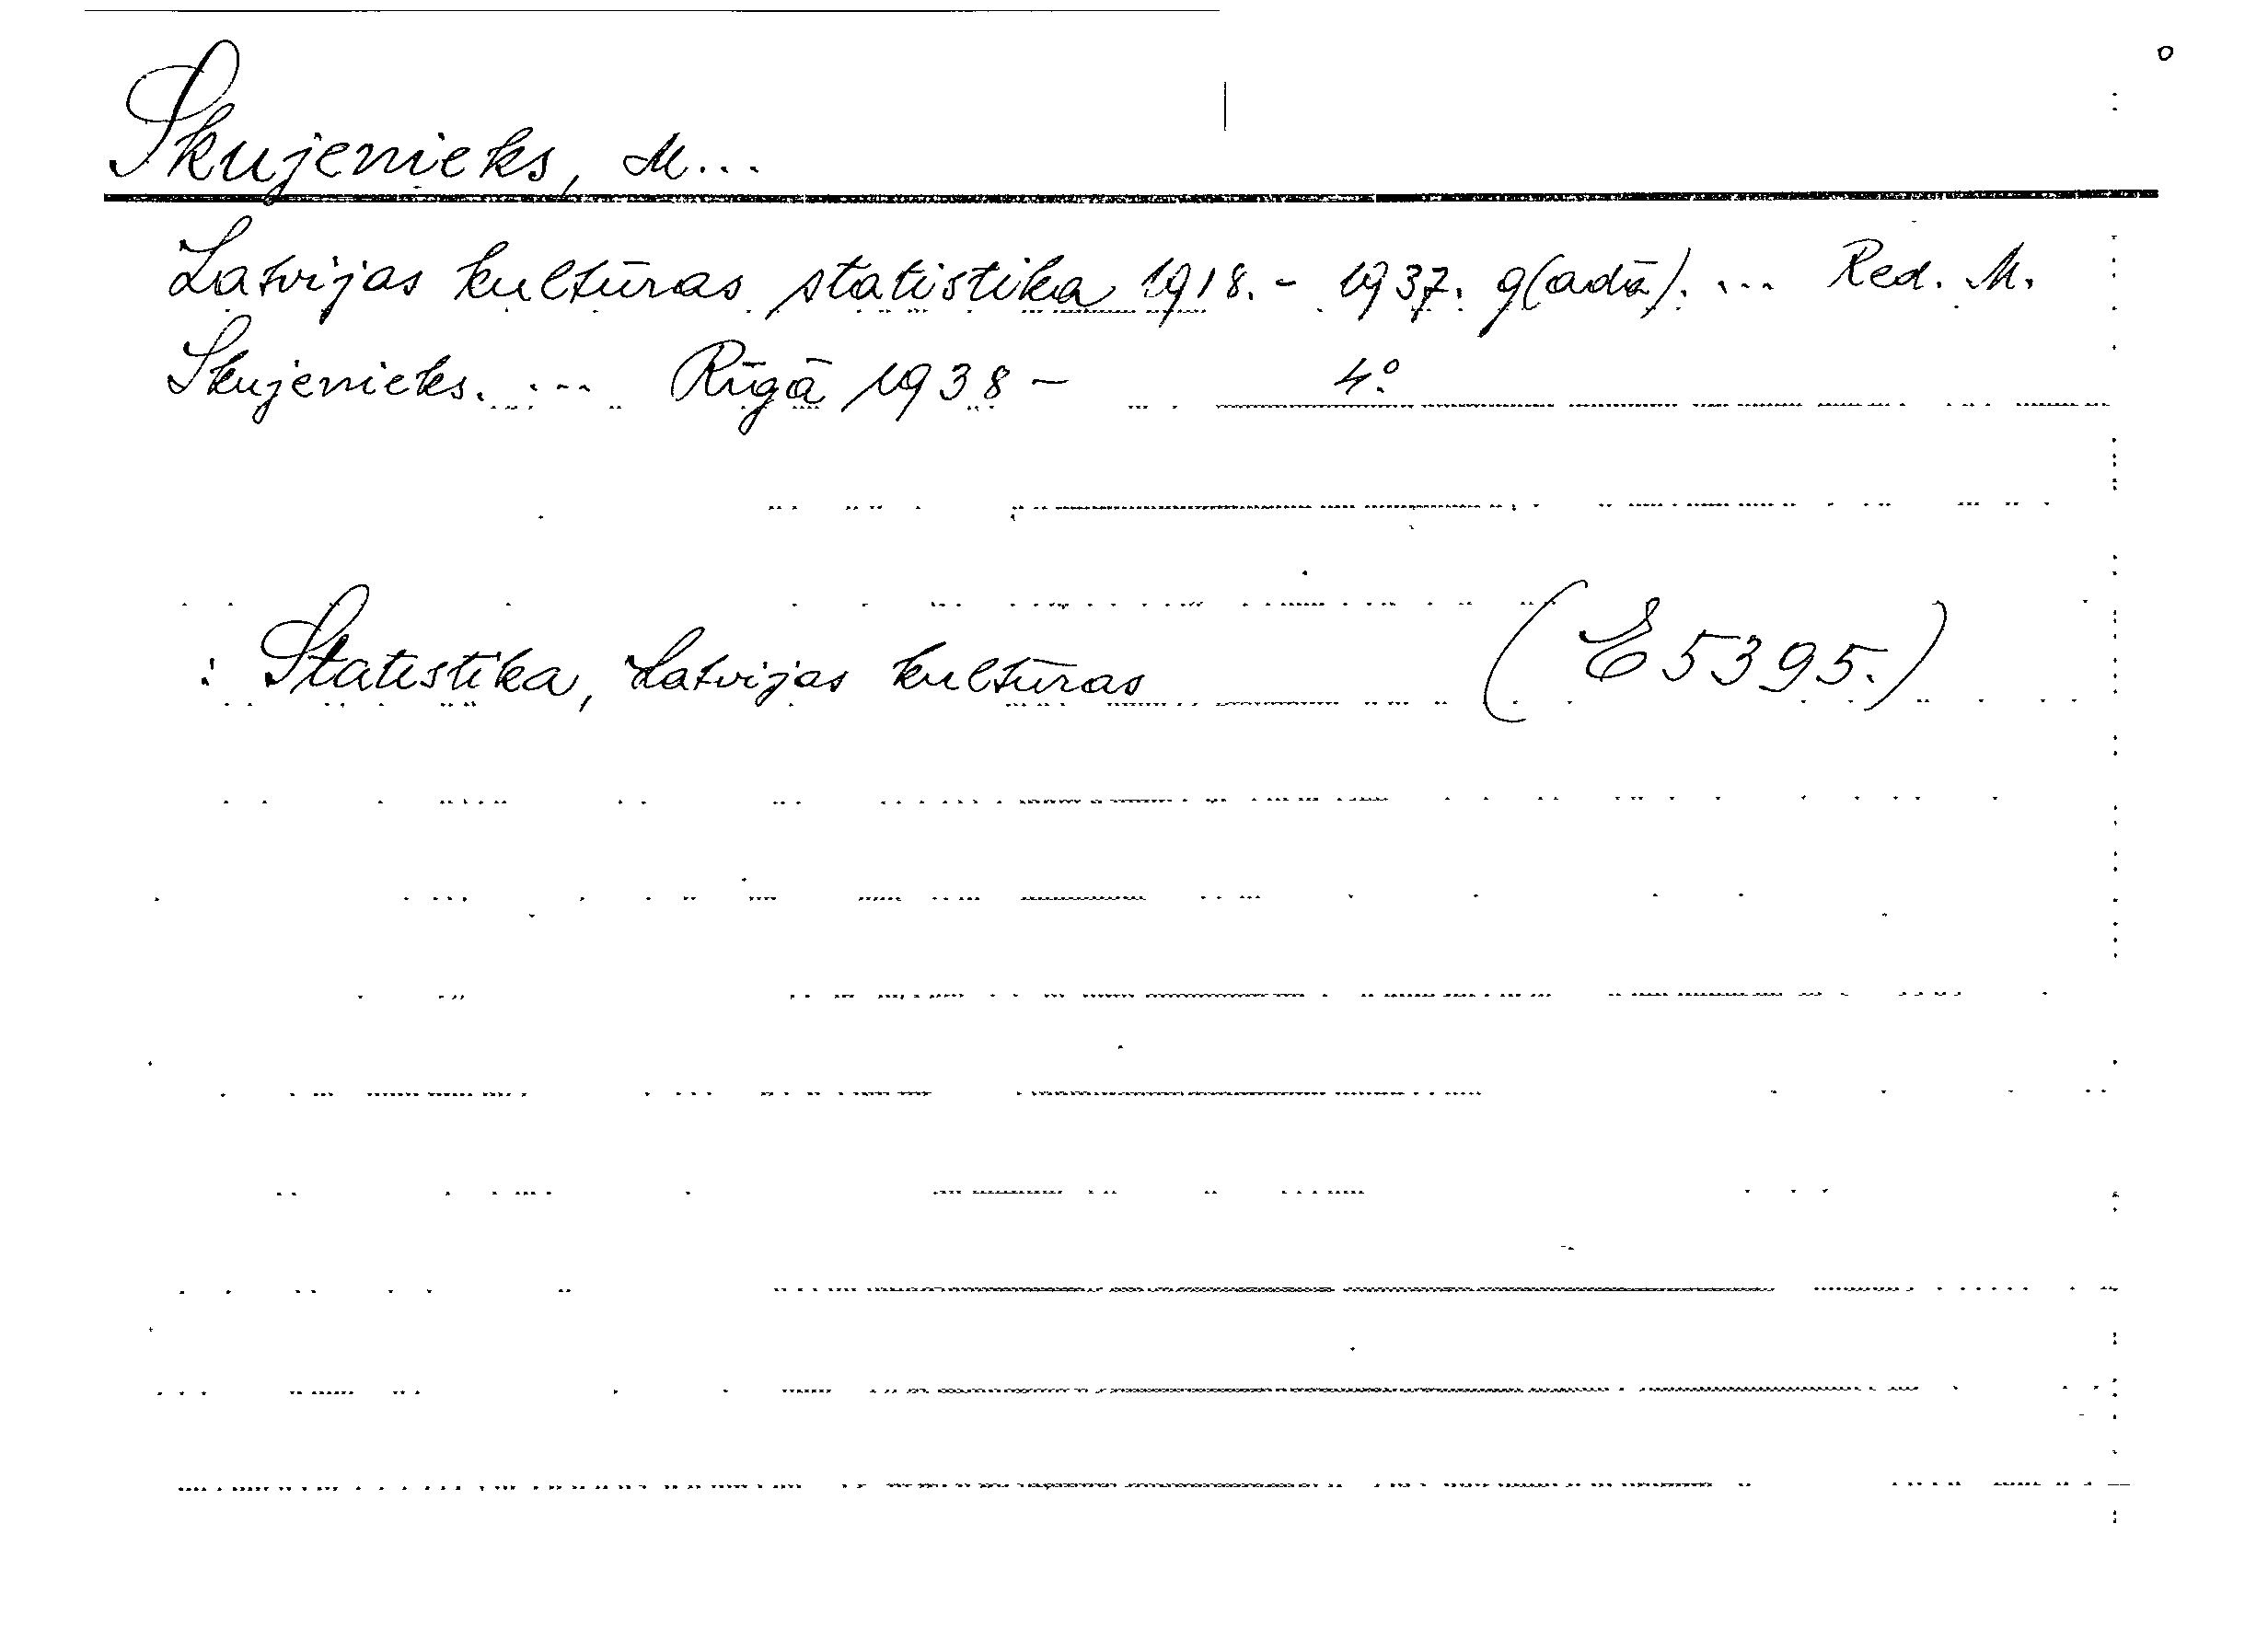 Skujenieks, M...
Latvijas kultūras statistika 1918.- 1937. g(adā). ... Red. M.
Skujenieks. ... Rīgā 1938 - 4:o
: Statistika, Latvijas kultūras (E 5395.)